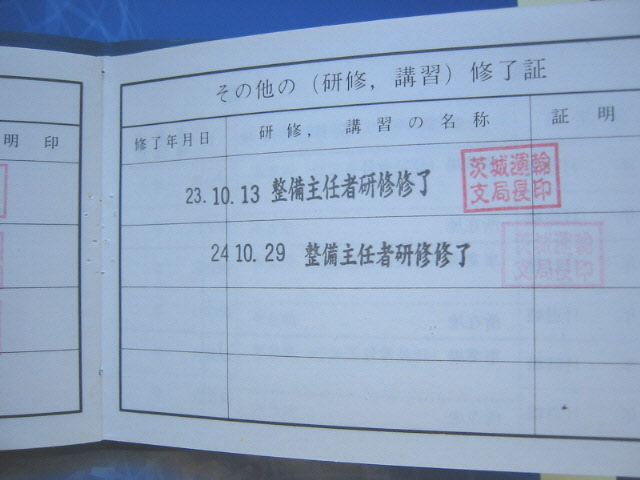 明 印
その他の（研修，講習）修了証
修了年月日 研修， 講習の名称 証 明
23.10.13 整備主任者研修修了
茨城運輸
支局長印
24 10.29 整備主任者研修修了
茨城運輸
支局長印